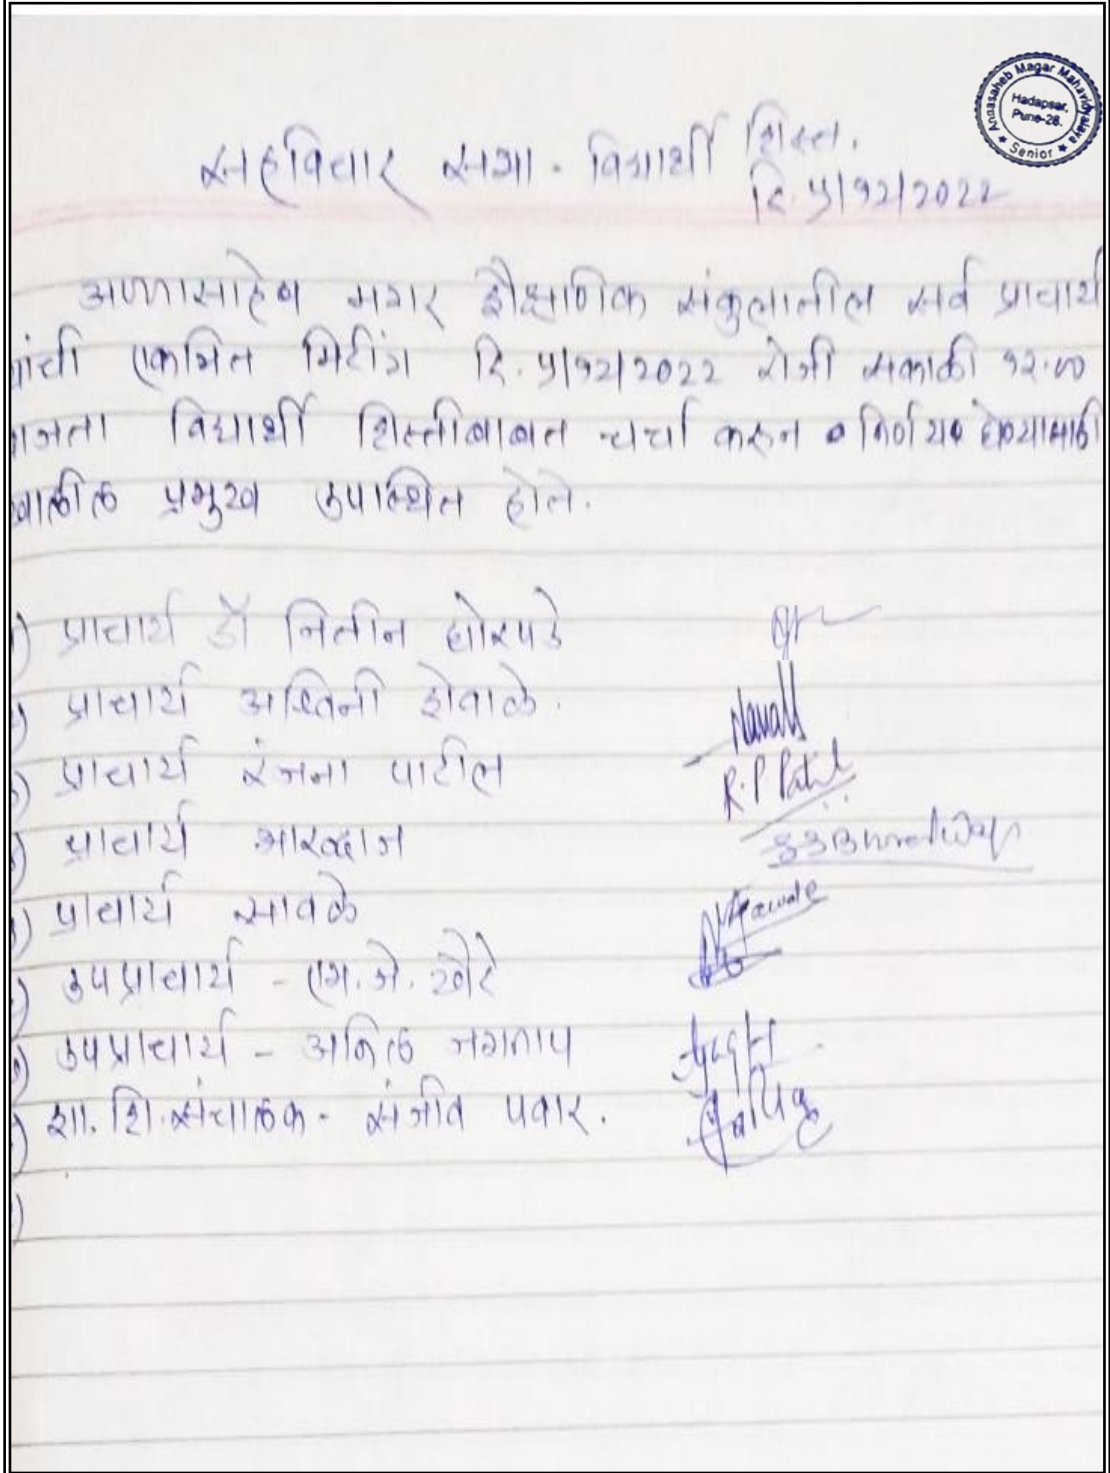 Annasaheb Magar Mahavidyalaya
Hadapsar,
Pune-28.
★ Senior ★
सहविचार सभा - विद्यार्थी शिस्त.
दि. ५/१२/२०२२
अण्णासाहेब मगर शैक्षणिक संकुलातील सर्व प्राचार्य
यांची एकत्रित मिटींग दि. ५/१२/२०२२ रोजी सकाळी १२.००
वाजता विद्यार्थी शिस्तीबाबत चर्चा करून निर्णय घेण्यासाठी
खालील प्रमुख उपस्थित होते.
प्राचार्य डॉ नितीन घोरपडे
प्राचार्य अश्विनी शेवाळे.
प्राचार्य रंजना पाटील R.P Patil
प्राचार्य भारद्वाज SSBharadwaj
प्राचार्य गावळे
उपप्राचार्य - एम.जे. खैरे
उपप्राचार्य - अनिल जगताप
शा. शि. संचालक - संजीव पवार.